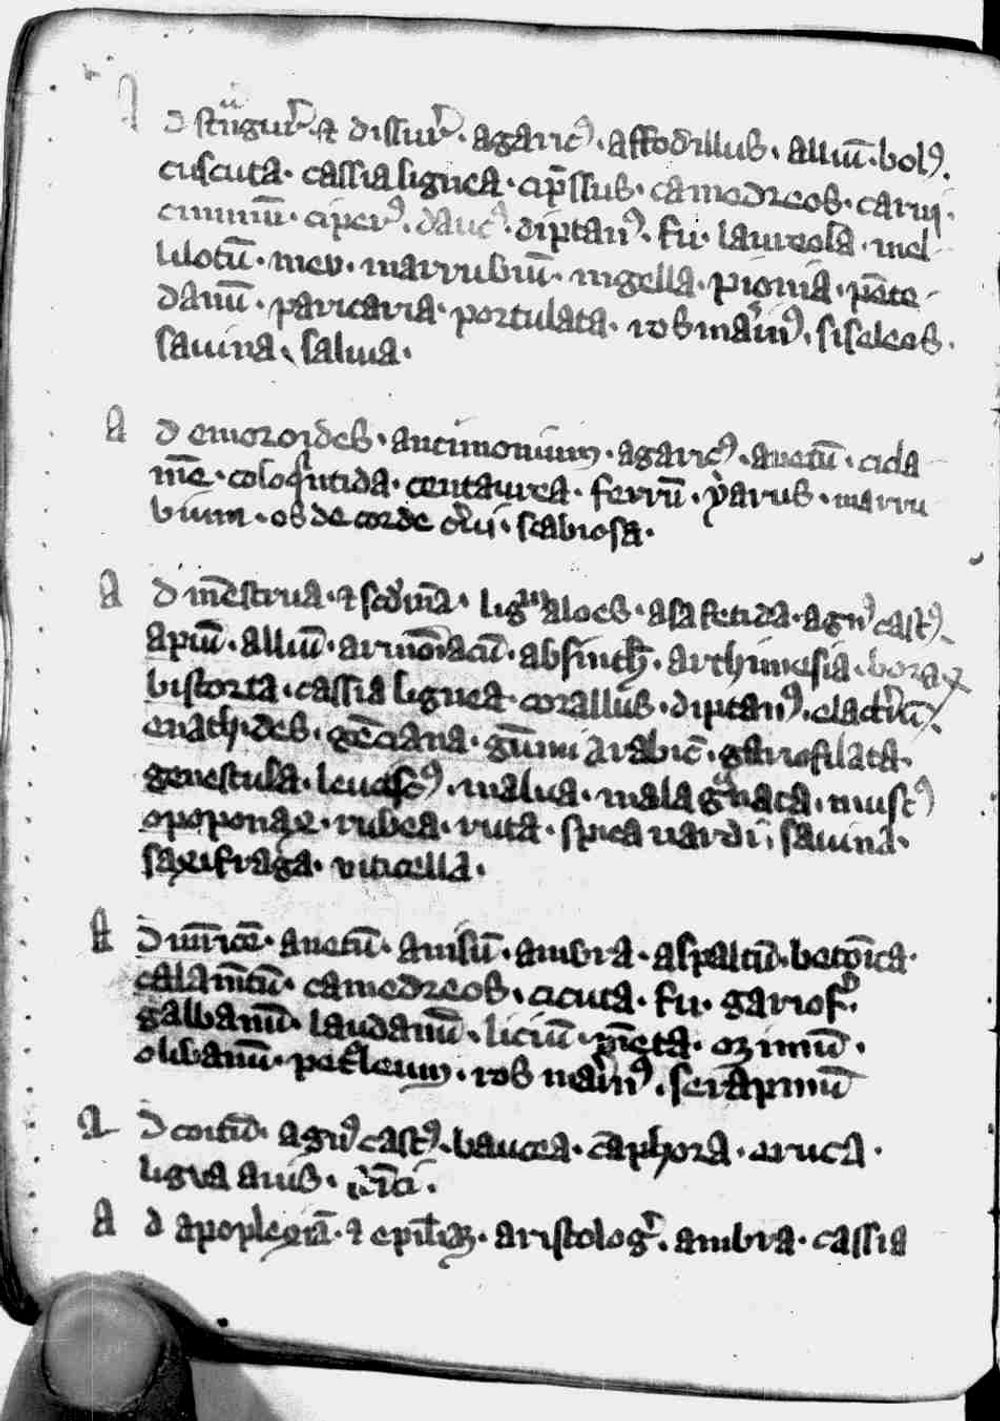 A d stͣngur᷑ ⁊ dissur᷑ · agaricꝰ · affodillus · alliū · bolꝰ ·
cuscuta · cassia lignea · cip̄ssus · camedreos · carui ·
ciminū · ciperꝰ · daucꝰ · diptanꝰ · fu · laureola · mel
lilotū · meu · marrubiū · nigella · pionia · pēte
danū · paritaria · portulata · ros marinꝰ · siseleos ·
sauina · salma ·
A d emoroides · antimonium · agaricꝰ · anetū · cicla
mē · coloqntida · centaurea · ferrū · ẏarus · marru
bium · os de corde c̾ui · scabiosa ·
A d mēstrua · ⁊ scd̾inā · lignū aloes · asa fetida · agnꝰ castꝰ
apiū · alliū · armōiacū · absinth̄ · arthimesia · borax
bistorta · cassia lignea · corallus · diptanꝰ · elact̾iū ·
emath̾ides · gēciana · gūmi arabic̄ · gariofilata ·
genestula · leuiscꝰ · malua · mala gͣnata · muscꝰ
opoponax · rubea · ruta · spica nardi · sauina ·
saxifraga · viticella ·
A d mr̄icē · anetū · anisū · ambra · aspaltū · betōica ·
calamētū · camedreos · cicuta · fu · gariof᷑ ·
galbanū · laudanū · liciū · mēta · ozimū ·
olibanū · pet̾leum · ros marinꝰ · serapinū
A d coitū · agnꝰ castꝰ · baucea · cāphora · eruca ·
ligua auis ·
A d apoplexiā · ⁊ epil̄iaꝫ · aristolog᷑ · ambra · cassia